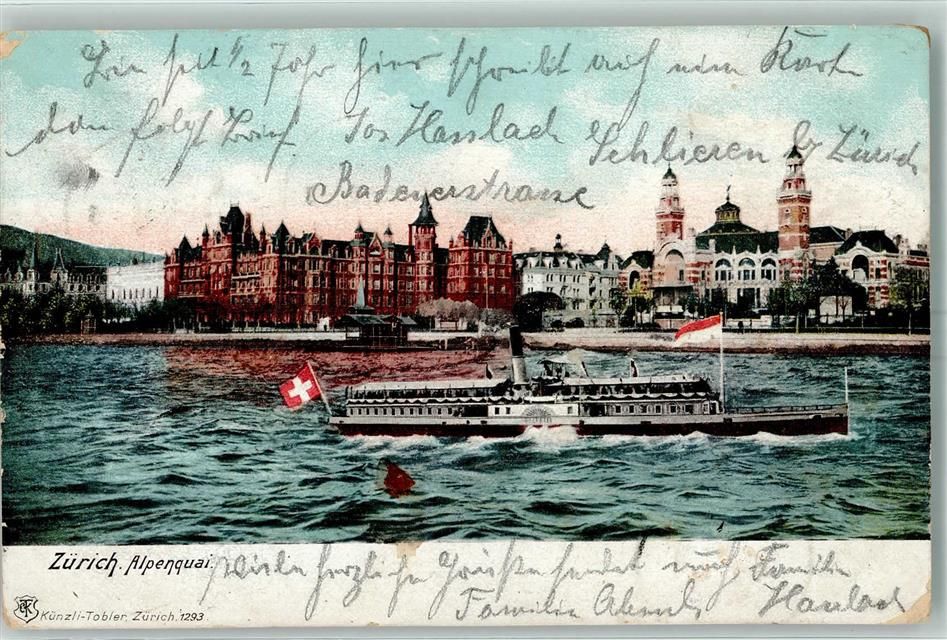 bin seit 1/2 Jahr hier schreibt auf mein Karte
dan folgt Brief Jos Hauslach Schlieren b/ Zürich
Badenerstrasse
Zürich. Alpenquai.
Viele herzliche Grüsse sendet euch Familie
Familie Hauslach
Künzli-Tobler, Zürich. 1293